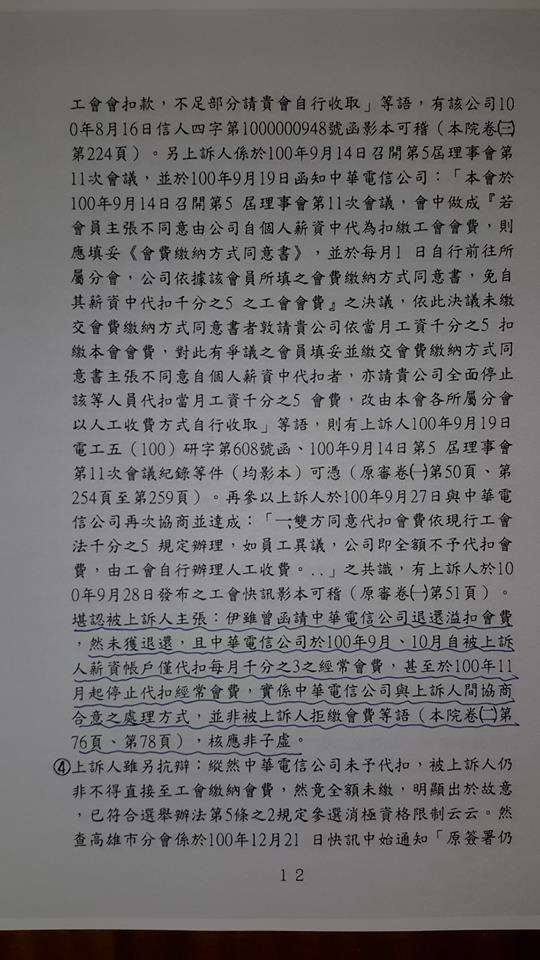 工會會扣款，不足部分請貴會自行收取」等語，有該公司10
0年8月16日信人四字第1000000948號函影本可稽（本院卷㈢
第224頁）。另上訴人係於100年9月14日召開第5屆理事會第
11次會議，並於100年9月19日函知中華電信公司：「本會於
100年9月14日召開第5 屆理事會第11次會議，會中做成『若
會員主張不同意由公司自個人薪資中代為扣繳工會會費，則
應填妥《會費繳納方式同意書》，並於每月1 日自行前往所
屬分會，公司依據該會員所填之會費繳納方式同意書，免自
其薪資中代扣千分之5 之工會會費』之決議，依此決議未繳
交會費繳納方式同意書者敦請貴公司依當月工資千分之5 扣
繳本會會費，對此有爭議之會員填妥並繳交會費繳納方式同
意書主張不同意自個人薪資中代扣者，亦請貴公司全面停止
該等人員代扣當月工資千分之5 會費，改由本會各所屬分會
以人工收費方式自行收取」等語，則有上訴人100年9月19日
電工五（100）研字第608號函、100年9月14日第5 屆理事會
第11次會議紀錄等件（均影本）可憑（原審卷㈠第50頁、第
254頁至第259頁）。再參以上訴人於100年9月27日與中華電
信公司再次協商並達成：「一、雙方同意代扣會費依現行工會
法千分之5 規定辦理，如員工異議，公司即全額不予代扣會
費，由工會自行辦理人工收費。...」之共識，有上訴人於10
0年9月28日發布之工會快訊影本可稽（原審卷㈠第51頁）。
堪認被上訴人主張：伊雖曾函請中華電信公司退還溢扣會費
，然未獲退還，且中華電信公司於100年9月、10月自被上訴
人薪資帳戶僅代扣每月千分之3之經常會費，甚至於100年11
月起停止代扣經常會費，實係中華電信公司與上訴人間協商
合意之處理方式，並非被上訴人拒繳會費等語（本院卷㈡第
76頁、第78頁），核應非子虛。
④上訴人雖另抗辯：縱然中華電信公司未予代扣，被上訴人仍
非不得直接至工會繳納會費，然竟全額未繳，明顯出於故意
，已符合選舉辦法第5條之2規定參選消極資格限制云云。然
查高雄市分會係於100年12月21 日快訊中始通知「原簽署仍
12